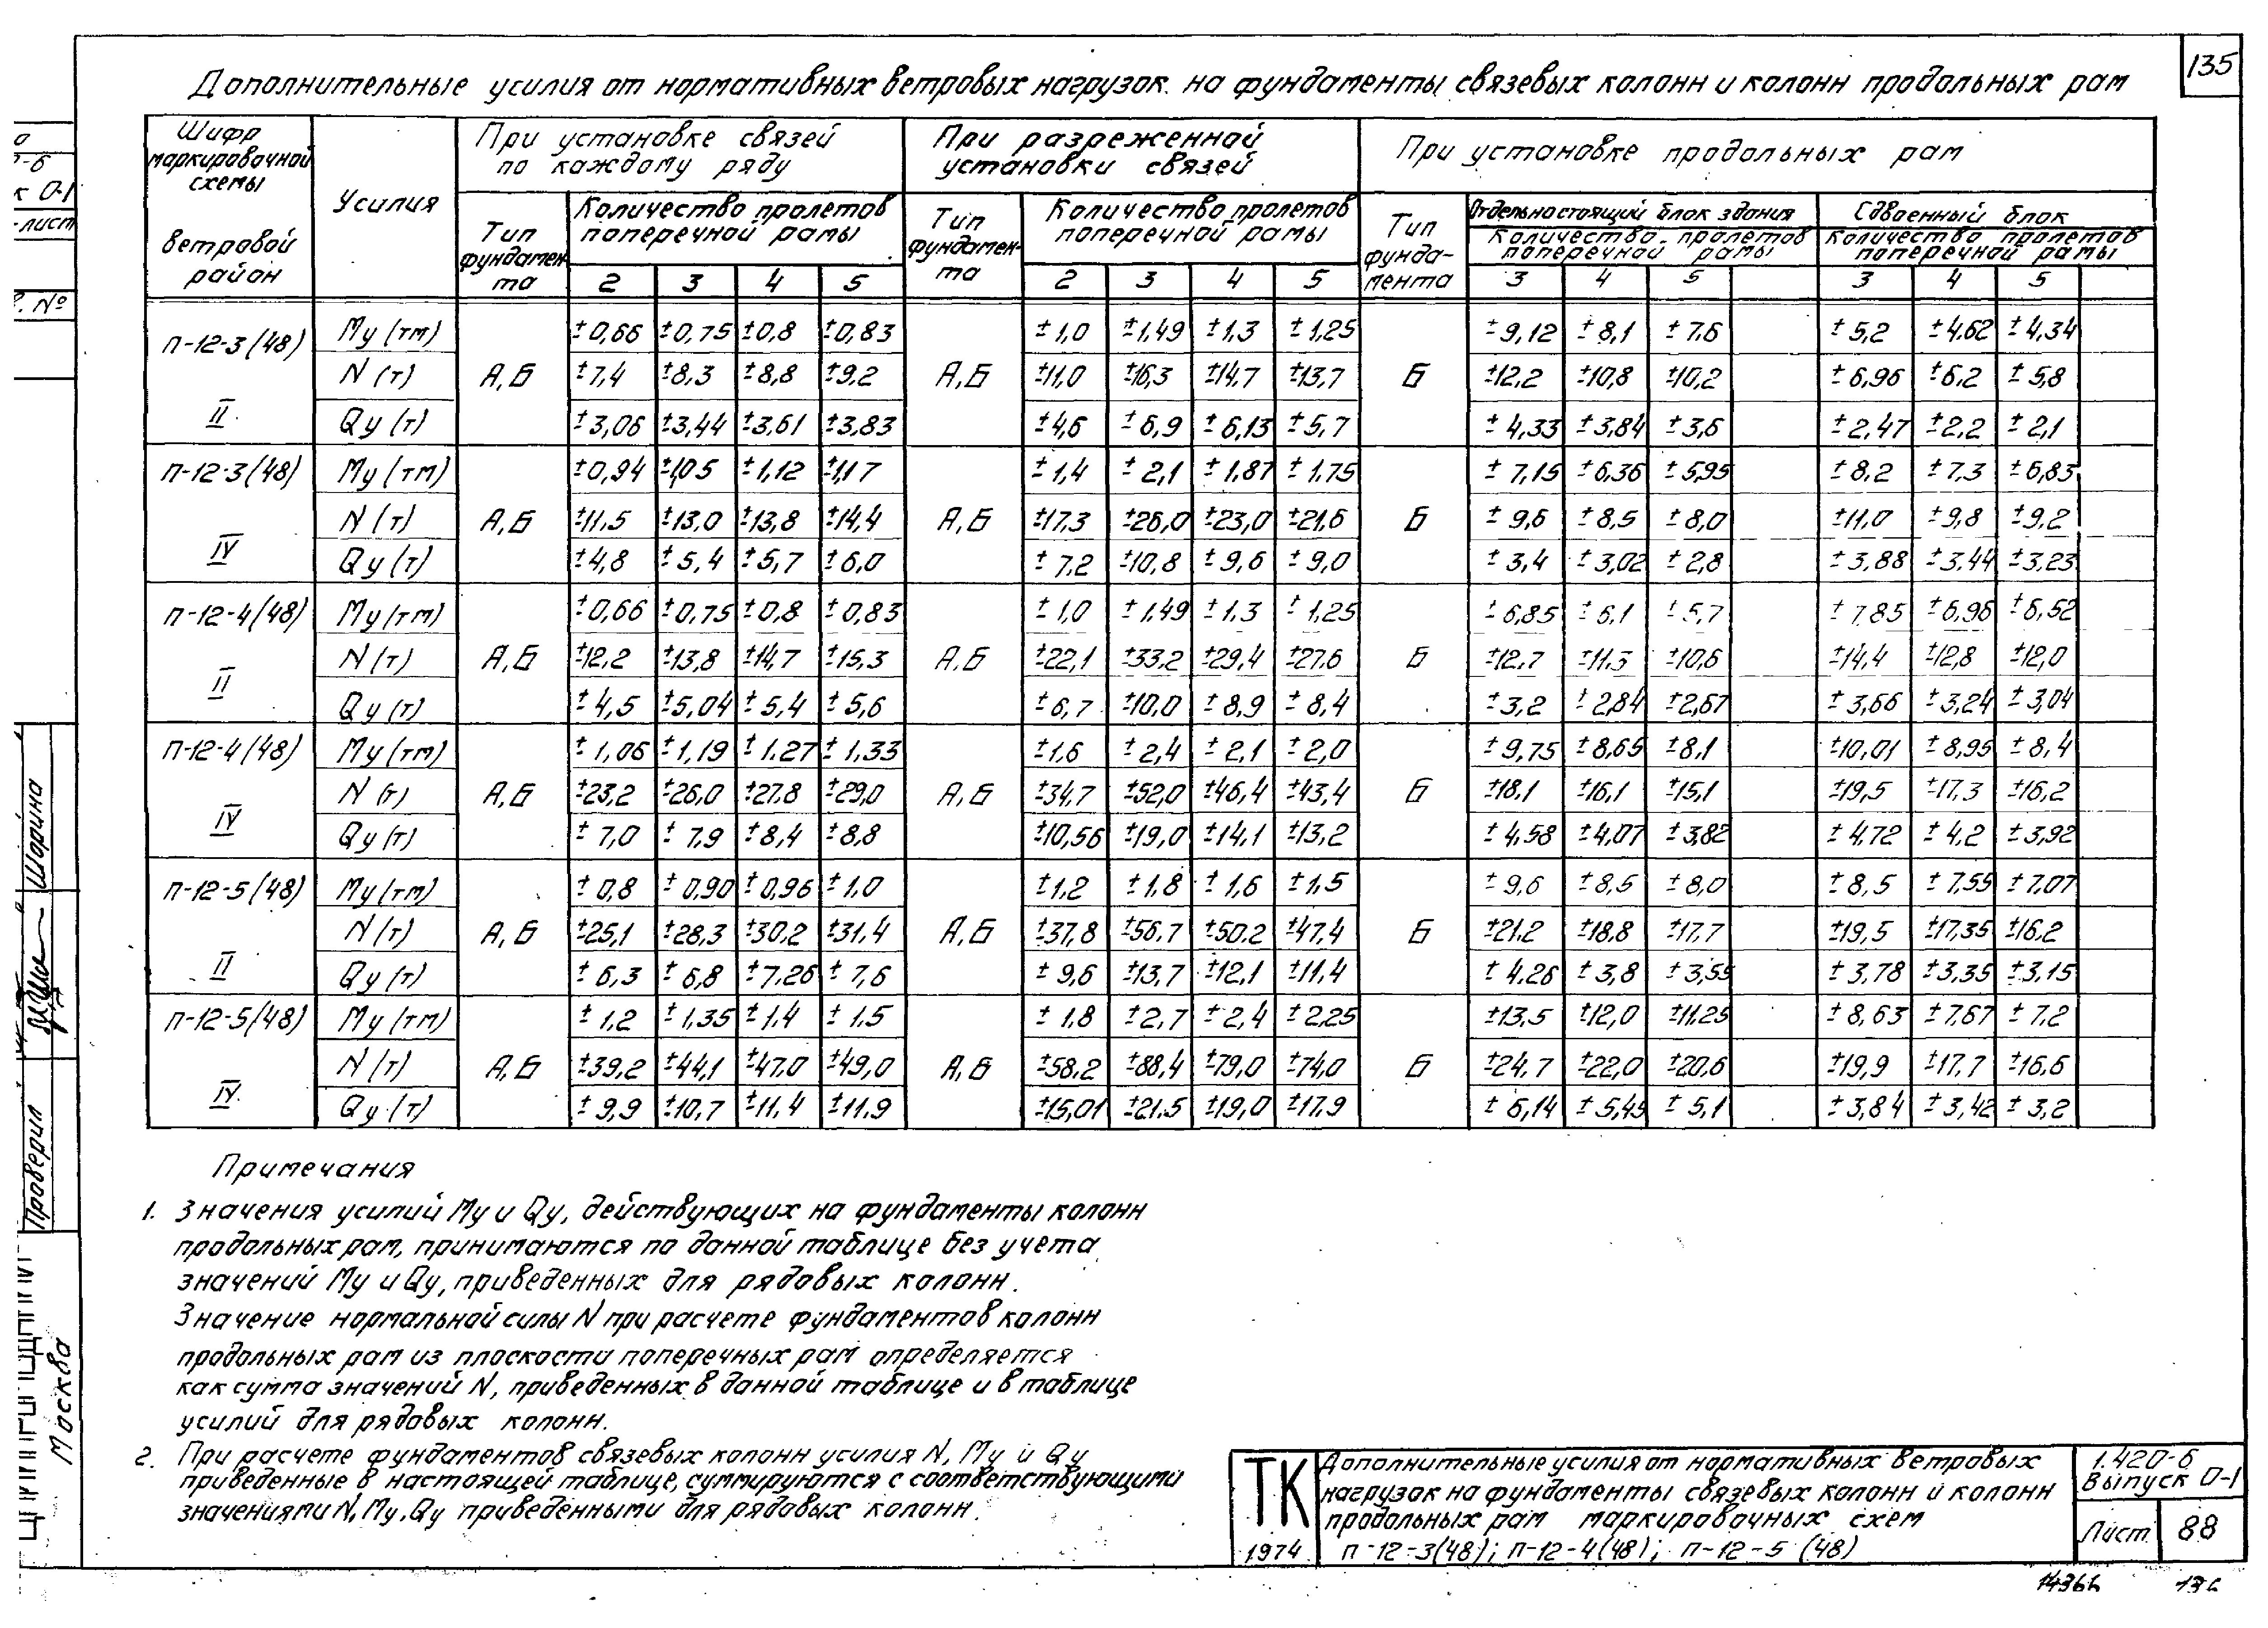 135
Дополнительные усилия от нормативных ветровых нагрузок на фундаменты связевых колонн и колонн продольных рам
Шифр маркировочной схемы ветровой район
Усилия
При установке связей по каждому ряду
При разреженной установки связей
При установке продольных рам
Тип фундамента
Количество пролетов поперечной рамы
Тип фундамента
Количество пролетов поперечной рамы
Тип фундамента
Отдельностоящий блок здания
Сдвоенный блок
Количество пролетов поперечной рамы
Количество пролетов поперечной рамы
2 3 4 5 2 3 4 5 3 4 5 3 4 5
П-12-3(48) II А,Б А,Б Б
Му(тм) ±0,66 ±0,75 ±0,8 ±0,83 ±1,0 ±1,49 ±1,3 ±1,25 ±9,12 ±8,1 ±7,6 ±5,2 ±4,62 ±4,34
N(т) ±7,4 ±8,3 ±8,8 ±9,2 ±11,0 ±16,3 ±14,7 ±13,7 ±12,2 ±10,8 ±10,2 ±6,96 ±6,2 ±5,8
Qу(т) ±3,06 ±3,44 ±3,61 ±3,83 ±4,6 ±6,9 ±6,13 ±5,7 ±4,33 ±3,84 ±3,6 ±2,47 ±2,2 ±2,1
П-12-3(48) IV А,Б А,Б Б
Му(тм) ±0,94 ±1,05 ±1,12 ±1,17 ±1,4 ±2,1 ±1,87 ±1,75 ±7,15 ±6,36 ±5,95 ±8,2 ±7,3 ±6,83
N(т) ±11,5 ±13,0 ±13,8 ±14,4 ±17,3 ±26,0 ±23,0 ±21,6 ±9,6 ±8,5 ±8,0 ±11,0 ±9,8 ±9,2
Qу(т) ±4,8 ±5,4 ±5,7 ±6,0 ±7,2 ±10,8 ±9,6 ±9,0 ±3,4 ±3,02 ±2,8 ±3,88 ±3,44 ±3,23
П-12-4(48) II А,Б А,Б Б
Му(тм) ±0,66 ±0,75 ±0,8 ±0,83 ±1,0 ±1,49 ±1,3 ±1,25 ±6,85 ±6,1 ±5,7 ±7,85 ±6,96 ±6,52
N(т) ±12,2 ±13,8 ±14,7 ±15,3 ±22,1 ±33,2 ±29,4 ±27,6 ±12,7 ±11,3 ±10,6 ±14,4 ±12,8 ±12,0
Qу(т) ±4,5 ±5,04 ±5,4 ±5,6 ±6,7 ±10,0 ±8,9 ±8,4 ±3,2 ±2,84 ±2,67 ±3,66 ±3,24 ±3,04
П-12-4(48) IV А,Б А,Б Б
Му(тм) ±1,06 ±1,19 ±1,27 ±1,33 ±1,6 ±2,4 ±2,1 ±2,0 ±9,75 ±8,65 ±8,1 ±10,01 ±8,95 ±8,4
N(т) ±23,2 ±26,0 ±27,8 ±29,0 ±34,7 ±52,0 ±46,4 ±43,4 ±18,1 ±16,1 ±15,1 ±19,5 ±17,3 ±16,2
Qу(т) ±7,0 ±7,9 ±8,4 ±8,8 ±10,56 ±19,0 ±14,1 ±13,2 ±4,58 ±4,07 ±3,82 ±4,72 ±4,2 ±3,92
П-12-5(48) II А,Б А,Б Б
Му(тм) ±0,8 ±0,90 ±0,96 ±1,0 ±1,2 ±1,8 ±1,6 ±1,5 ±9,6 ±8,5 ±8,0 ±8,5 ±7,55 ±7,07
N(т) ±25,1 ±28,3 ±30,2 ±31,4 ±37,8 ±56,7 ±50,2 ±47,4 ±21,2 ±18,8 ±17,7 ±19,5 ±17,35 ±16,2
Qу(т) ±6,3 ±6,8 ±7,26 ±7,6 ±9,6 ±13,7 ±12,1 ±11,4 ±4,26 ±3,8 ±3,55 ±3,78 ±3,35 ±3,15
П-12-5(48) IV А,Б А,Б Б
Му(тм) ±1,2 ±1,35 ±1,4 ±1,5 ±1,8 ±2,7 ±2,4 ±2,25 ±13,5 ±12,0 ±11,25 ±8,63 ±7,67 ±7,2
N(т) ±39,2 ±44,1 ±47,0 ±49,0 ±58,2 ±88,4 ±79,0 ±74,0 ±24,7 ±22,0 ±20,6 ±19,9 ±17,7 ±16,6
Qу(т) ±9,9 ±10,7 ±11,4 ±11,9 ±15,01 ±21,5 ±19,0 ±17,9 ±6,14 ±5,45 ±5,1 ±3,84 ±3,42 ±3,2
Примечания
1. Значения усилий Му и Qу, действующих на фундаменты колонн
продольных рам, принимаются по данной таблице без учета
значений Му и Qу, приведенных для рядовых колонн.
Значение нормальной силы N при расчете фундаментов колонн
продольных рам из плоскости поперечных рам определяется
как сумма значений N, приведенных в данной таблице и в таблице
усилий для рядовых колонн.
2. При расчете фундаментов связевых колонн усилия N, Му и Qу
приведенные в настоящей таблице, суммируются с соответствующими
значениями N, Му, Qу приведенными для рядовых колонн.
ТК
1974
Дополнительные усилия от нормативных ветровых
нагрузок на фундаменты связевых колонн и колонн
продольных рам маркировочных схем
П-12-3(48); П-12-4(48); П-12-5(48)
1.420-6
Выпуск 0-1
Лист 88
Шарина
Проверил
Москва